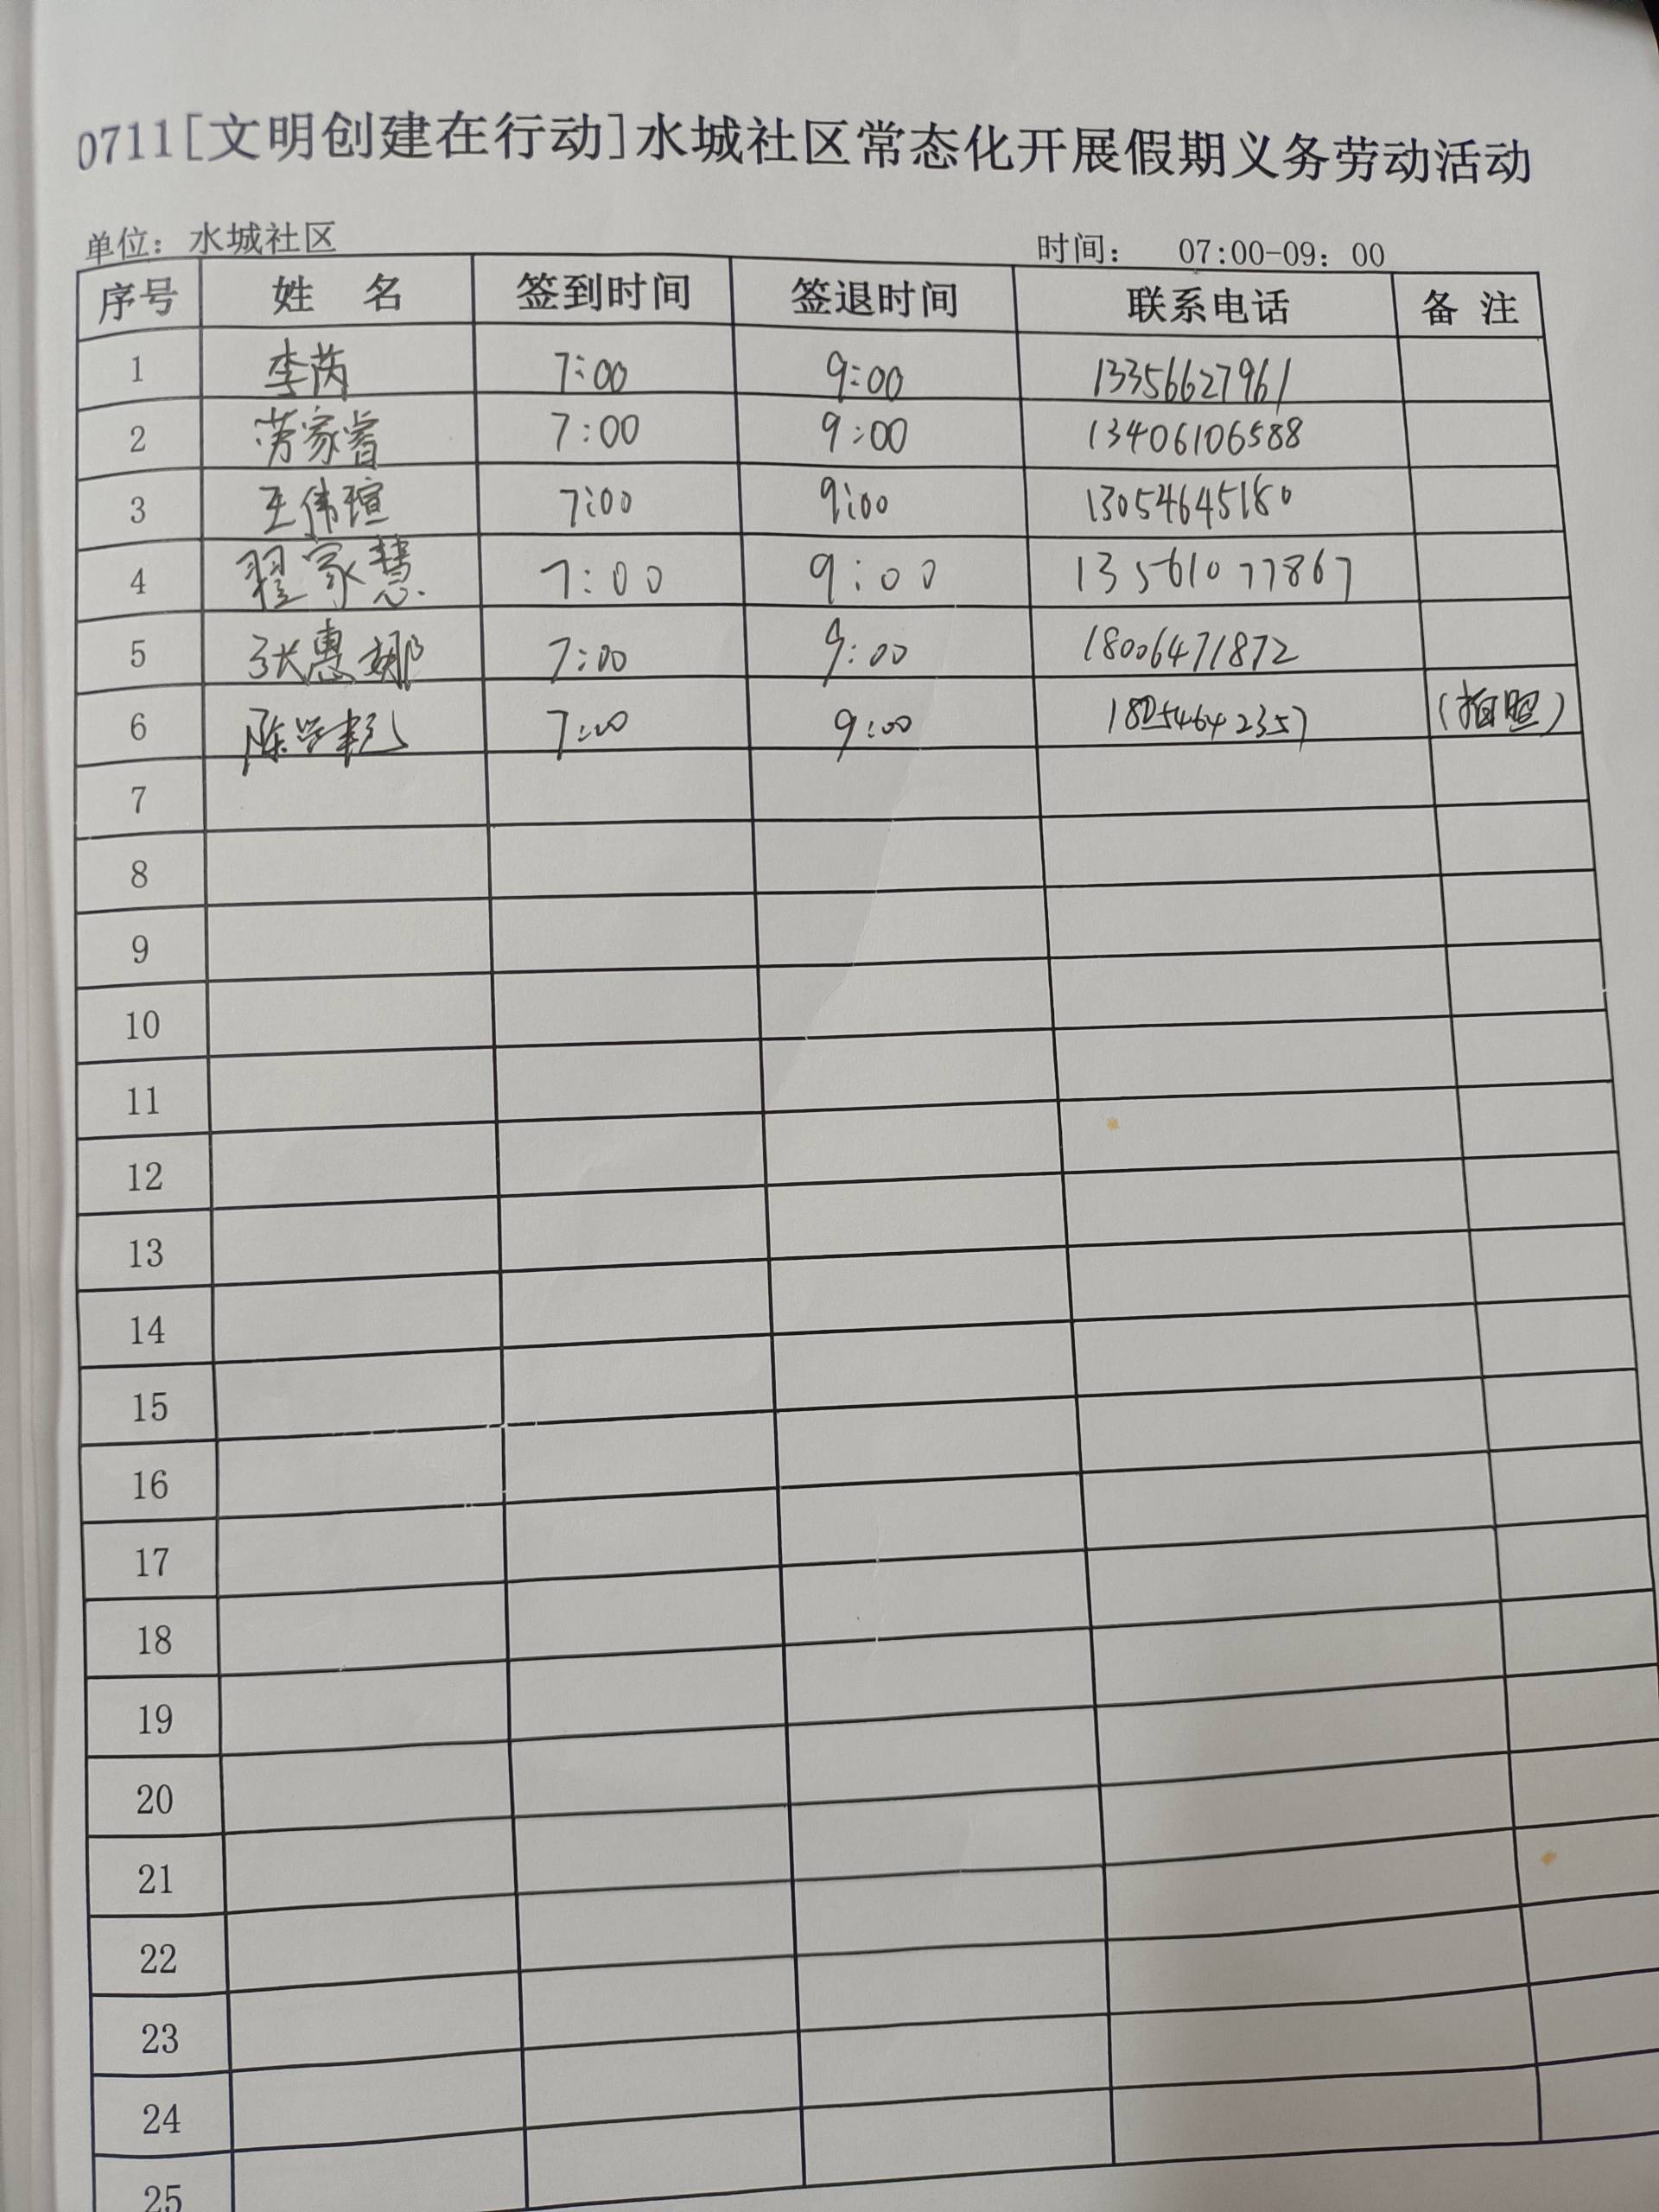 0711[文明创建在行动]水城社区常态化开展假期义务劳动活动
单位：水城社区 时间： 07:00-09：00
序号 姓 名 签到时间 签退时间 联系电话 备 注
1 李芮 7:00 9:00 13356627961
2 劳家睿 7:00 9:00 13406106588
3 王伟瑄 7:00 9:00 13054645180
4 翟家慧 7:00 9:00 13561077867
5 张惠娜 7:00 9:00 18006471872
6 7:00 9:00 18254642357 (拍照)
7
8
9
10
11
12
13
14
15
16
17
18
19
20
21
22
23
24
25